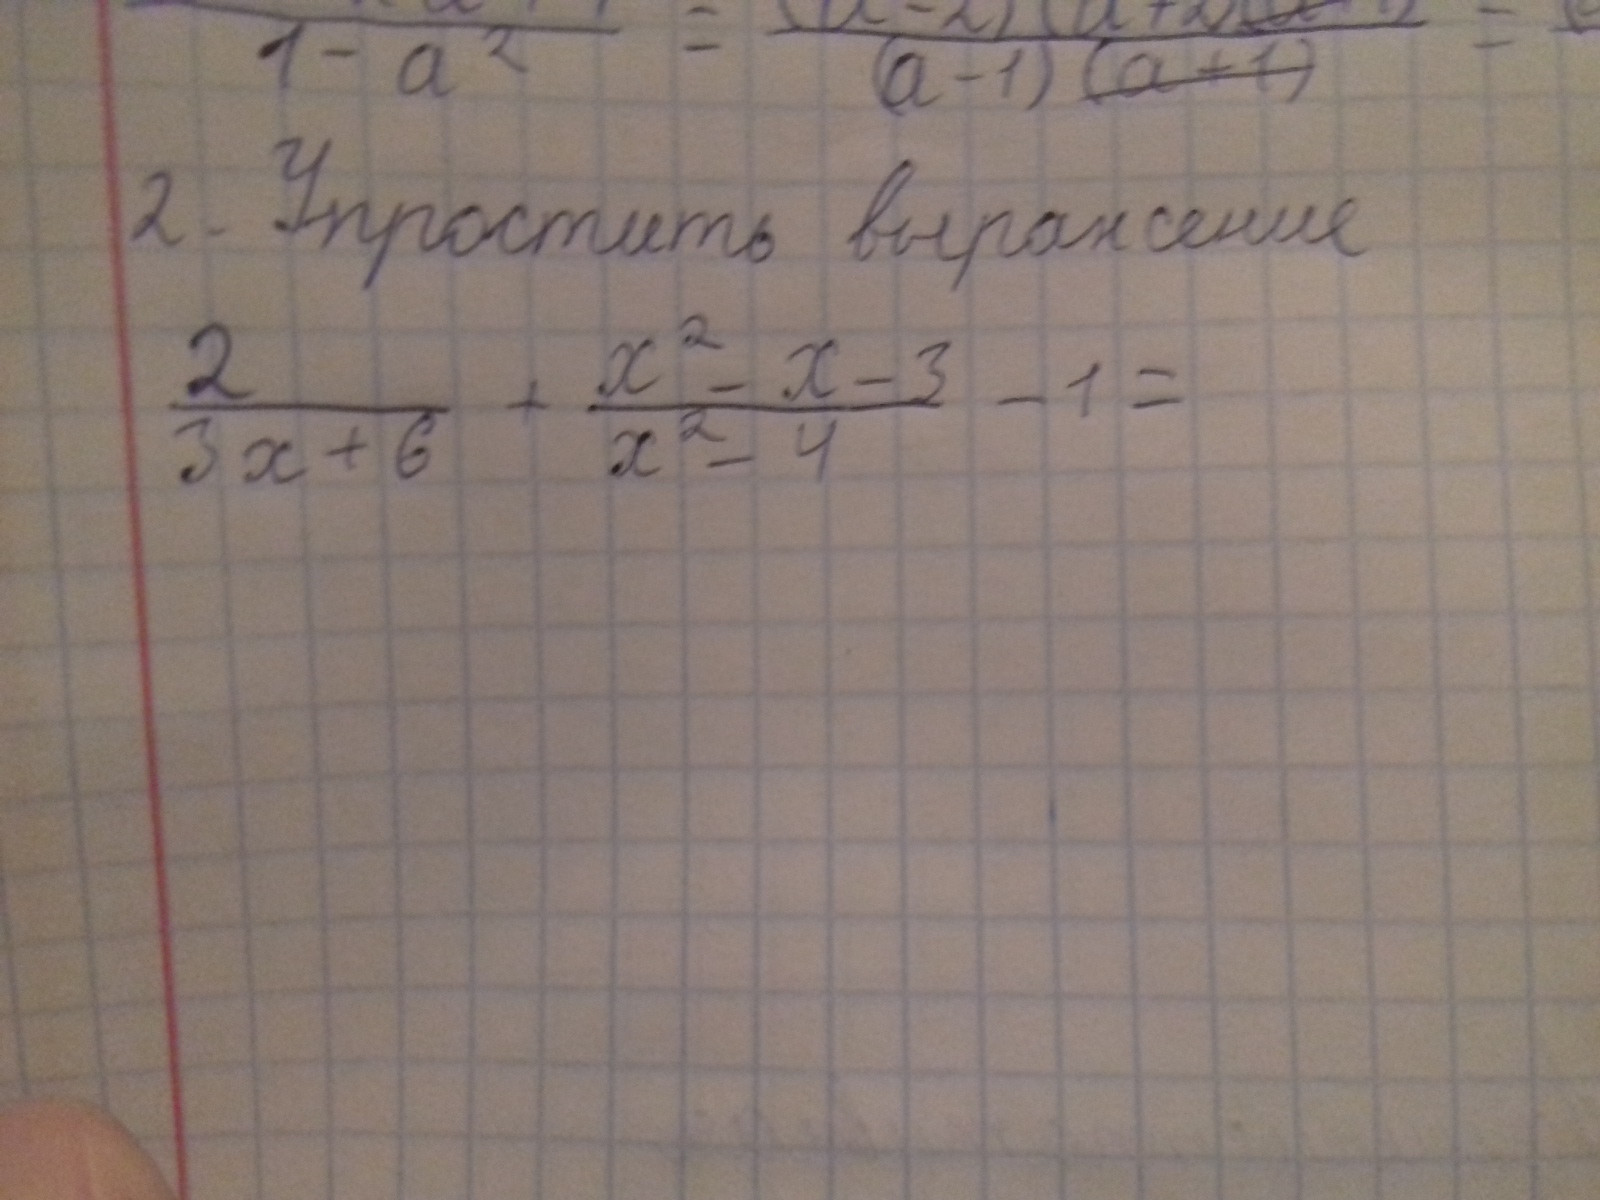 1 - a² = (a-2)(a+2)(a+1) / (a-1)(a+1) =
2. Упростить выражение
2/(3x+6) + (x² - x - 3)/(x² - 4) - 1 =